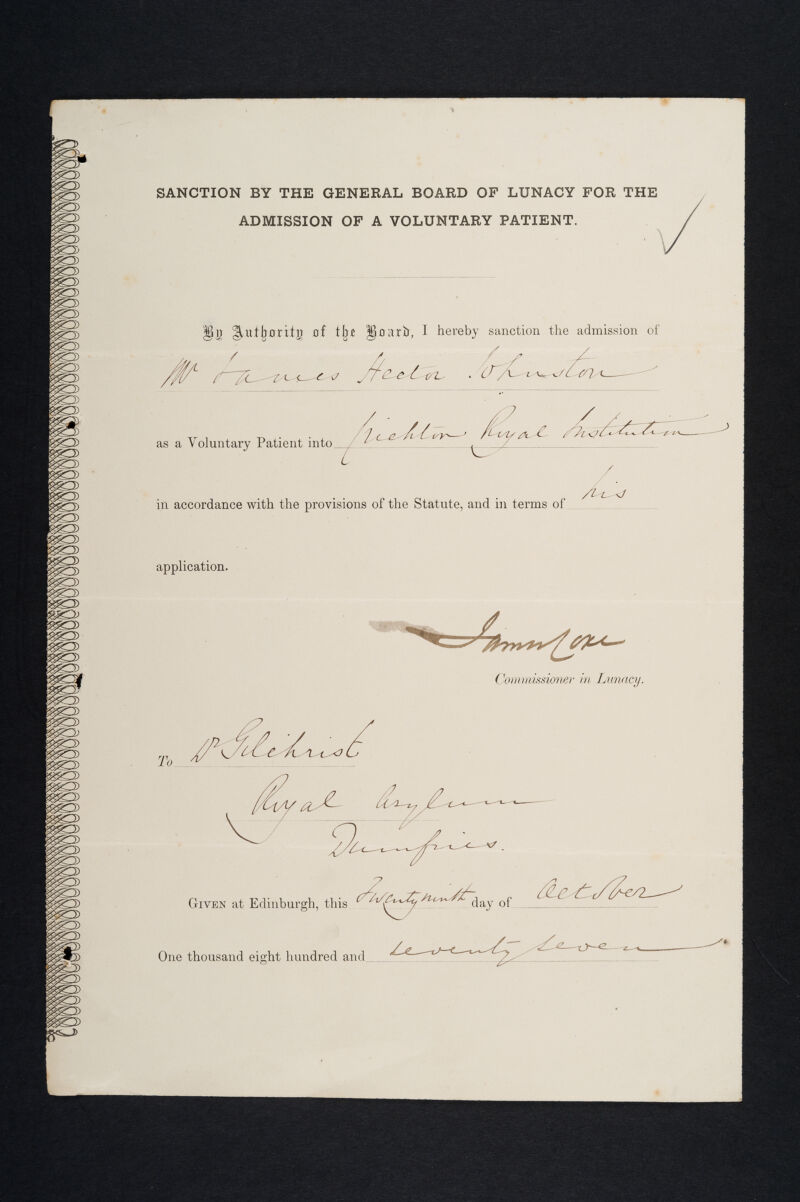 SANCTION BY THE GENERAL BOARD OF LUNACY FOR THE
ADMISSION OF A VOLUNTARY PATIENT.
By Authority of the Board, I hereby sanction the admission of
Mr James Hector Johnston
as a Voluntary Patient into Crichton Royal Institution
in accordance with the provisions of the Statute, and in terms of his
application.
James Coxe
Commissioner in Lunacy.
To Dr Gilchrist
Royal Asylum
Dumfries.
GIVEN at Edinburgh, this Twenty ninth day of October
One thousand eight hundred and seventy seven